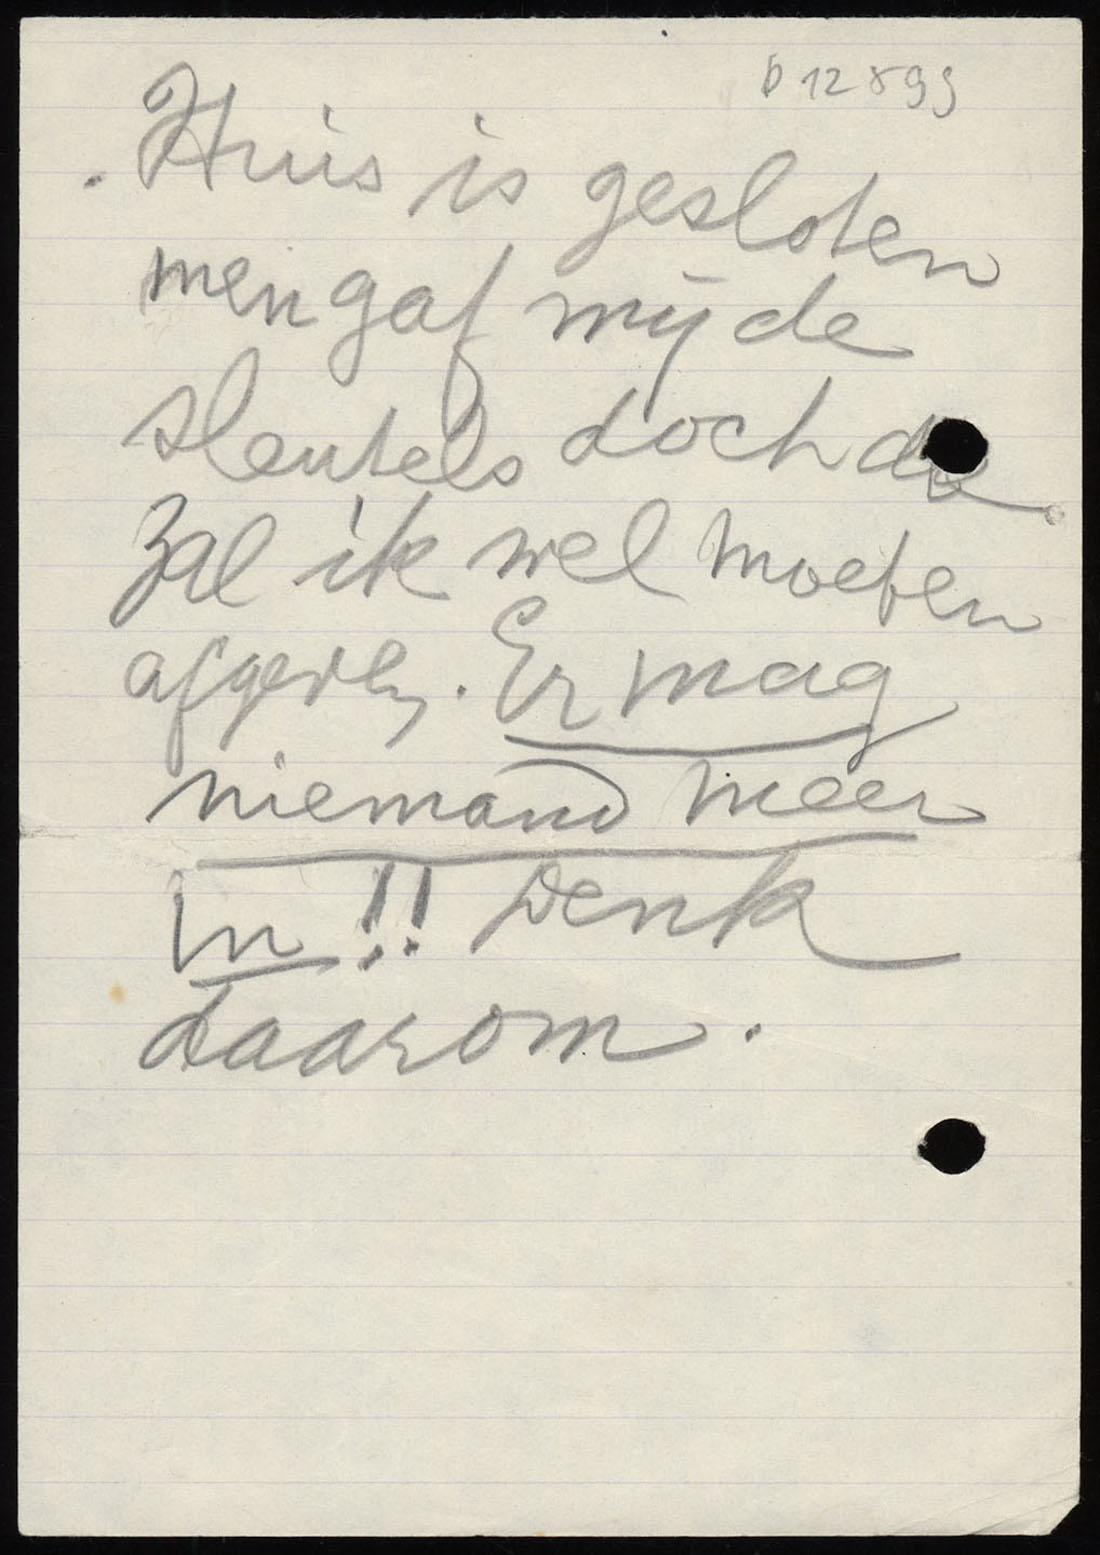 D12899
Huis is gesloten
men gaf mij de
sleutels doch die
zal ik wel moeten
afgeven. Er mag
niemand meer
in !! Denk
daarom.